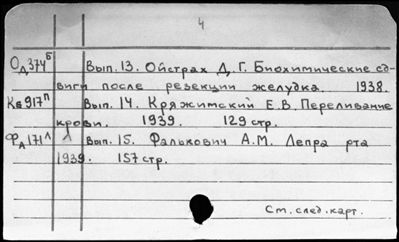 4
Од374б Вып. 13. Ойстрах Д. Г. Биохимические сд-
виги после резекции желудка. 1938.
Кб917п Вып. 14. Кряжимский Е. В. Переливание
крови. 1939. 129 стр.
ФА171л Вып. 15. Фалькович А. М. Лепра рта
1939. 157 стр.
См. след. карт.